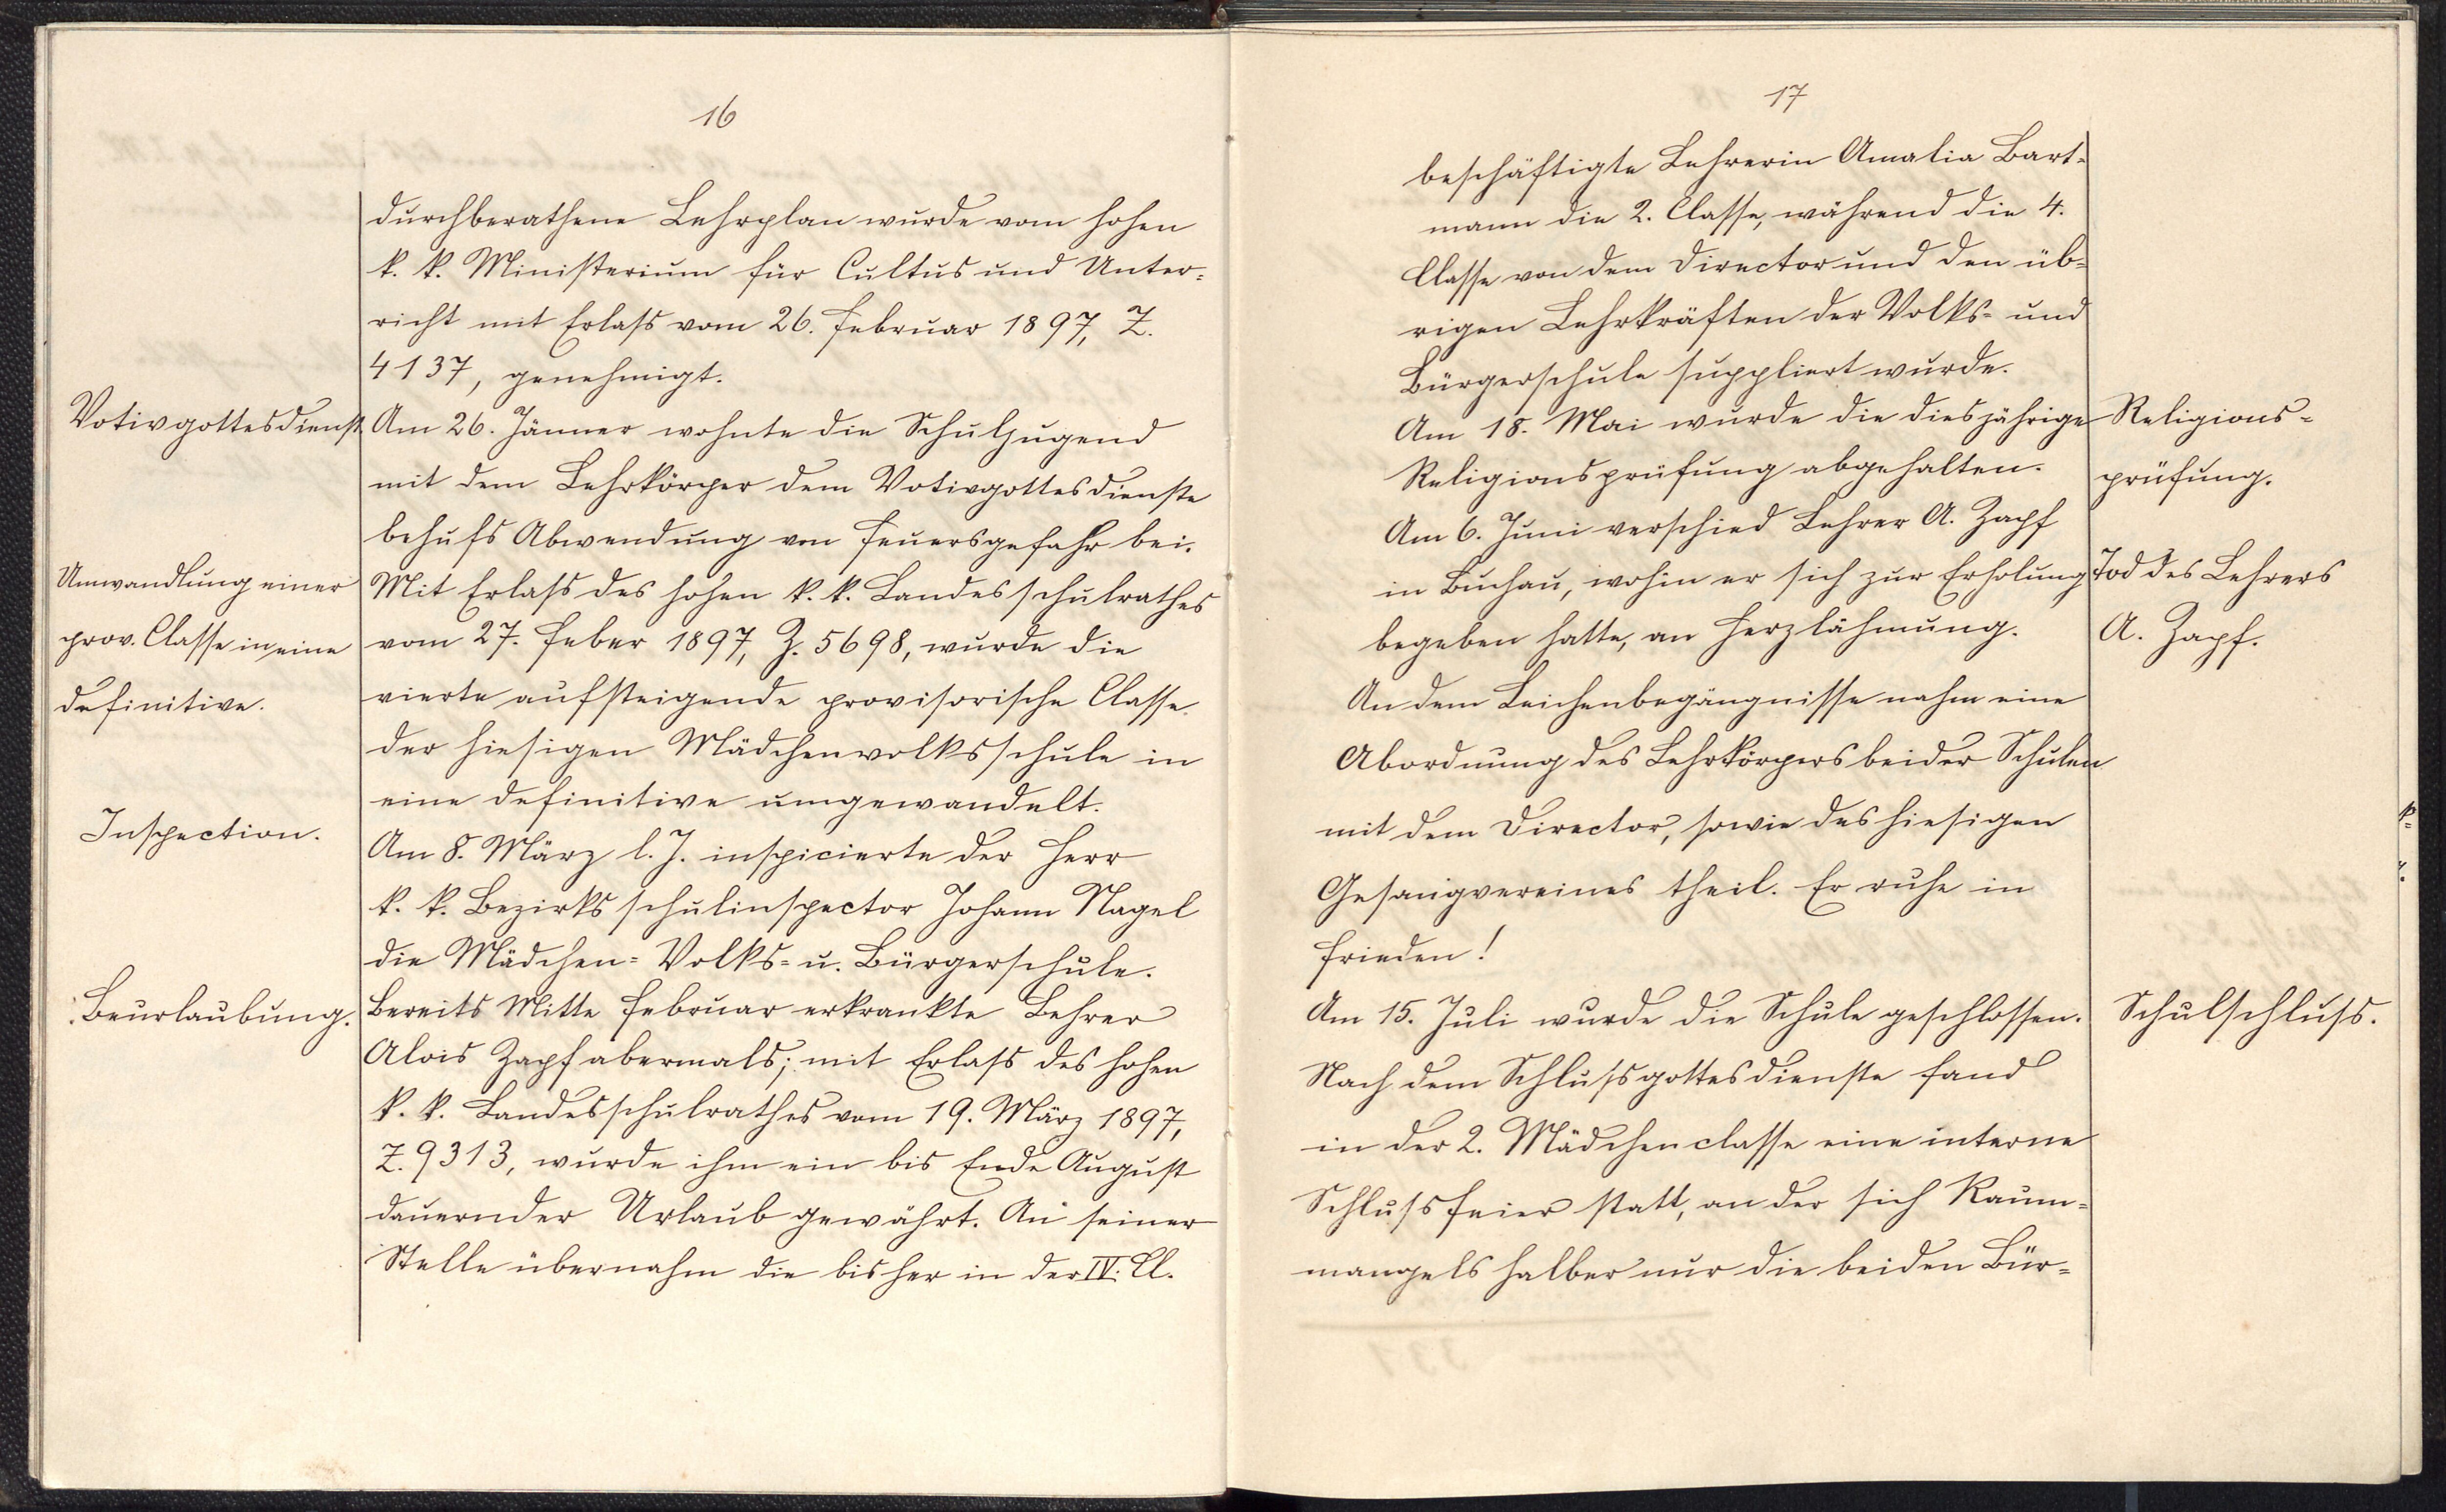 16
durchberathene Lehrplan wurde vom hohen
k. k. Ministerium für Cultus und Unter-
richt mit Erlass vom 26. Februar 1897, Z.
4137, genehmigt.
Votivgottesdienst
Am 26. Jänner wohnte die Schuljugend
mit dem Lehrkörper dem Votivgottesdienste
behufs Abwendung von Feuersgefahr bei.
Umwandlung einer
prov. Classe in eine
definitive.
Mit Erlass des hohen k. k. Landesschulrathes
vom 27. Feber 1897, Z. 5698, wurde die
vierte aufsteigende provisorische Classe
der hiesigen Mädchenvolksschule in
eine definitive umgewandelt.
Inspection.
Am 8. März l. J. inspicierte der Herr
k. k. Bezirksschulinspector Johann Nagel
die Mädchen- Volks- u. Bürgerschule.
Beurlaubung.
Bereits Mitte Februar erkrankte Lehrer
Alois Zapf abermals; mit Erlass des hohen
k. k. Landesschulrathes vom 19. März 1897,
Z. 9313, wurde ihm ein bis Ende August
dauernder Urlaub gewährt. An seiner
Stelle übernahm die bisher in der IV. Cl.
17
beschäftigte Lehrerin Amalia Bart-
mann die 2. Classe, während die 4.
Classe von dem Director und den üb-
rigen Lehrkräften der Volks- und
Bürgerschule suppliert wurde.
Am 18. Mai wurde die diesjährige
Religionsprüfung abgehalten.
Religions-
prüfung.
Am 6. Juni verschied Lehrer A. Zapf
in Buchau, wohin er sich zur Erholung
begeben hatte, an Herzlähmung.
Tod des Lehrers
A. Zapf.
An dem Leichenbegängnisse nahm eine
Abordnung des Lehrkörpers beider Schulen
mit dem Director, sowie des hiesigen
Gesangvereines theil. Er ruhe in
Frieden!
Am 15. Juli wurde die Schule geschlossen.
Schulschluss.
Nach dem Schlussgottesdienste fand
in der 2. Mädchenclasse eine interne
Schlussfeier statt, an der sich Raum-
mangels halber nur die beiden Bür-